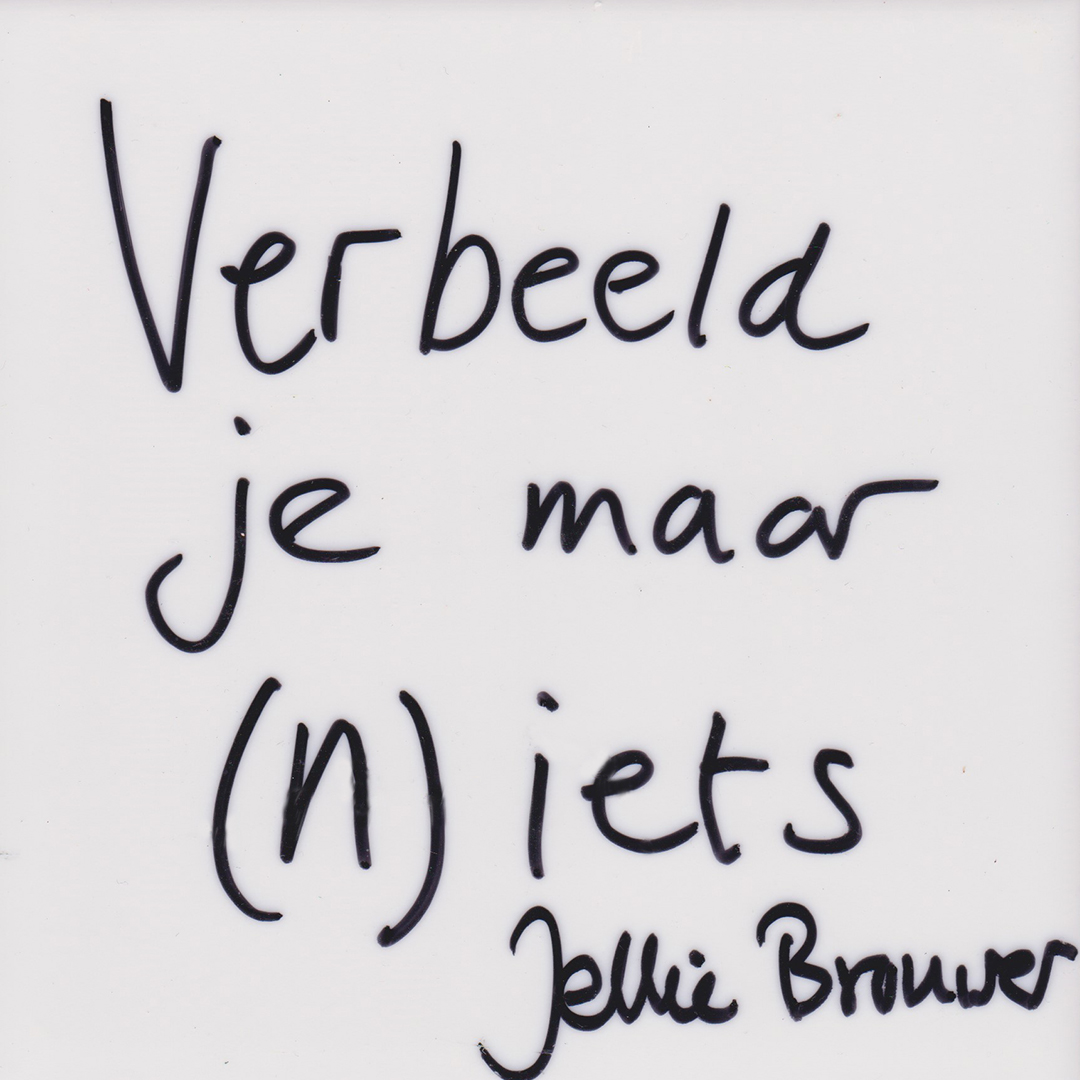 Verbeeld
je maar
(n)iets
Jellie Brouwer